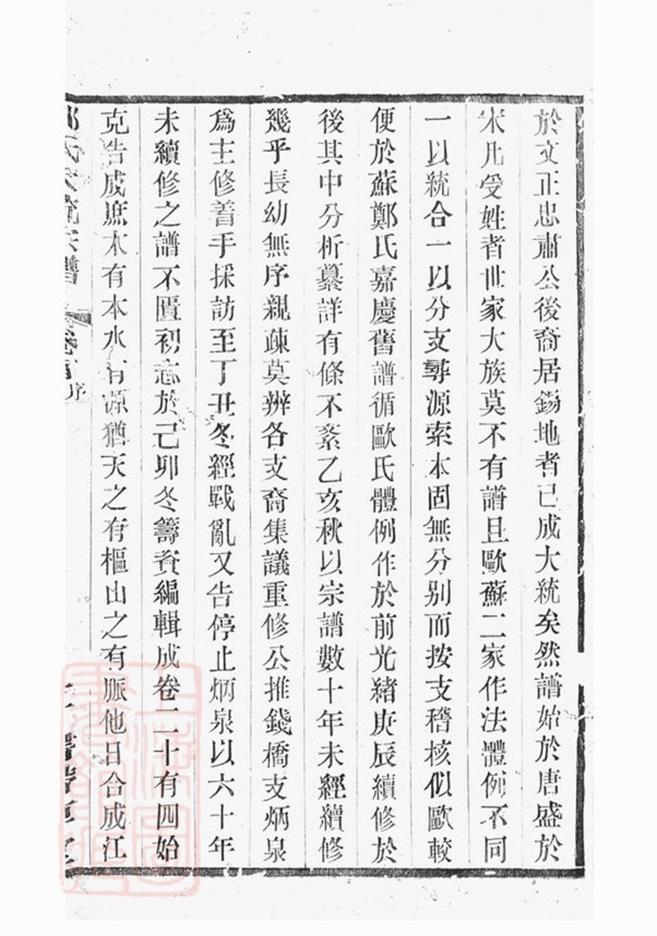 於文正忠肅公後裔居錫地者已成大統矣然譜始於唐盛於
宋凡受姓者世家大族莫不有譜且歐蘇二家作法體例不同
一以統合一以分支尋源索本固無分别而按支稽核似歐較
便於蘇鄭氏嘉慶舊譜循歐氏體例作於前光緒庚辰續修於
後其中分析纂詳有條不紊乙亥秋以宗譜數十年未經續修
幾乎長幼無序親疎莫辨各支裔集議重修公推錢橋支炳泉
爲主修着手採訪至丁丑冬經戰亂又告停止炳泉以六十年
未續修之譜不匱初志於己卯冬籌資編輯成卷二十有四始
克告成庶木有本水有源猶天之有樞山之有脈他日合成江
氏大統宗譜
卷首
序